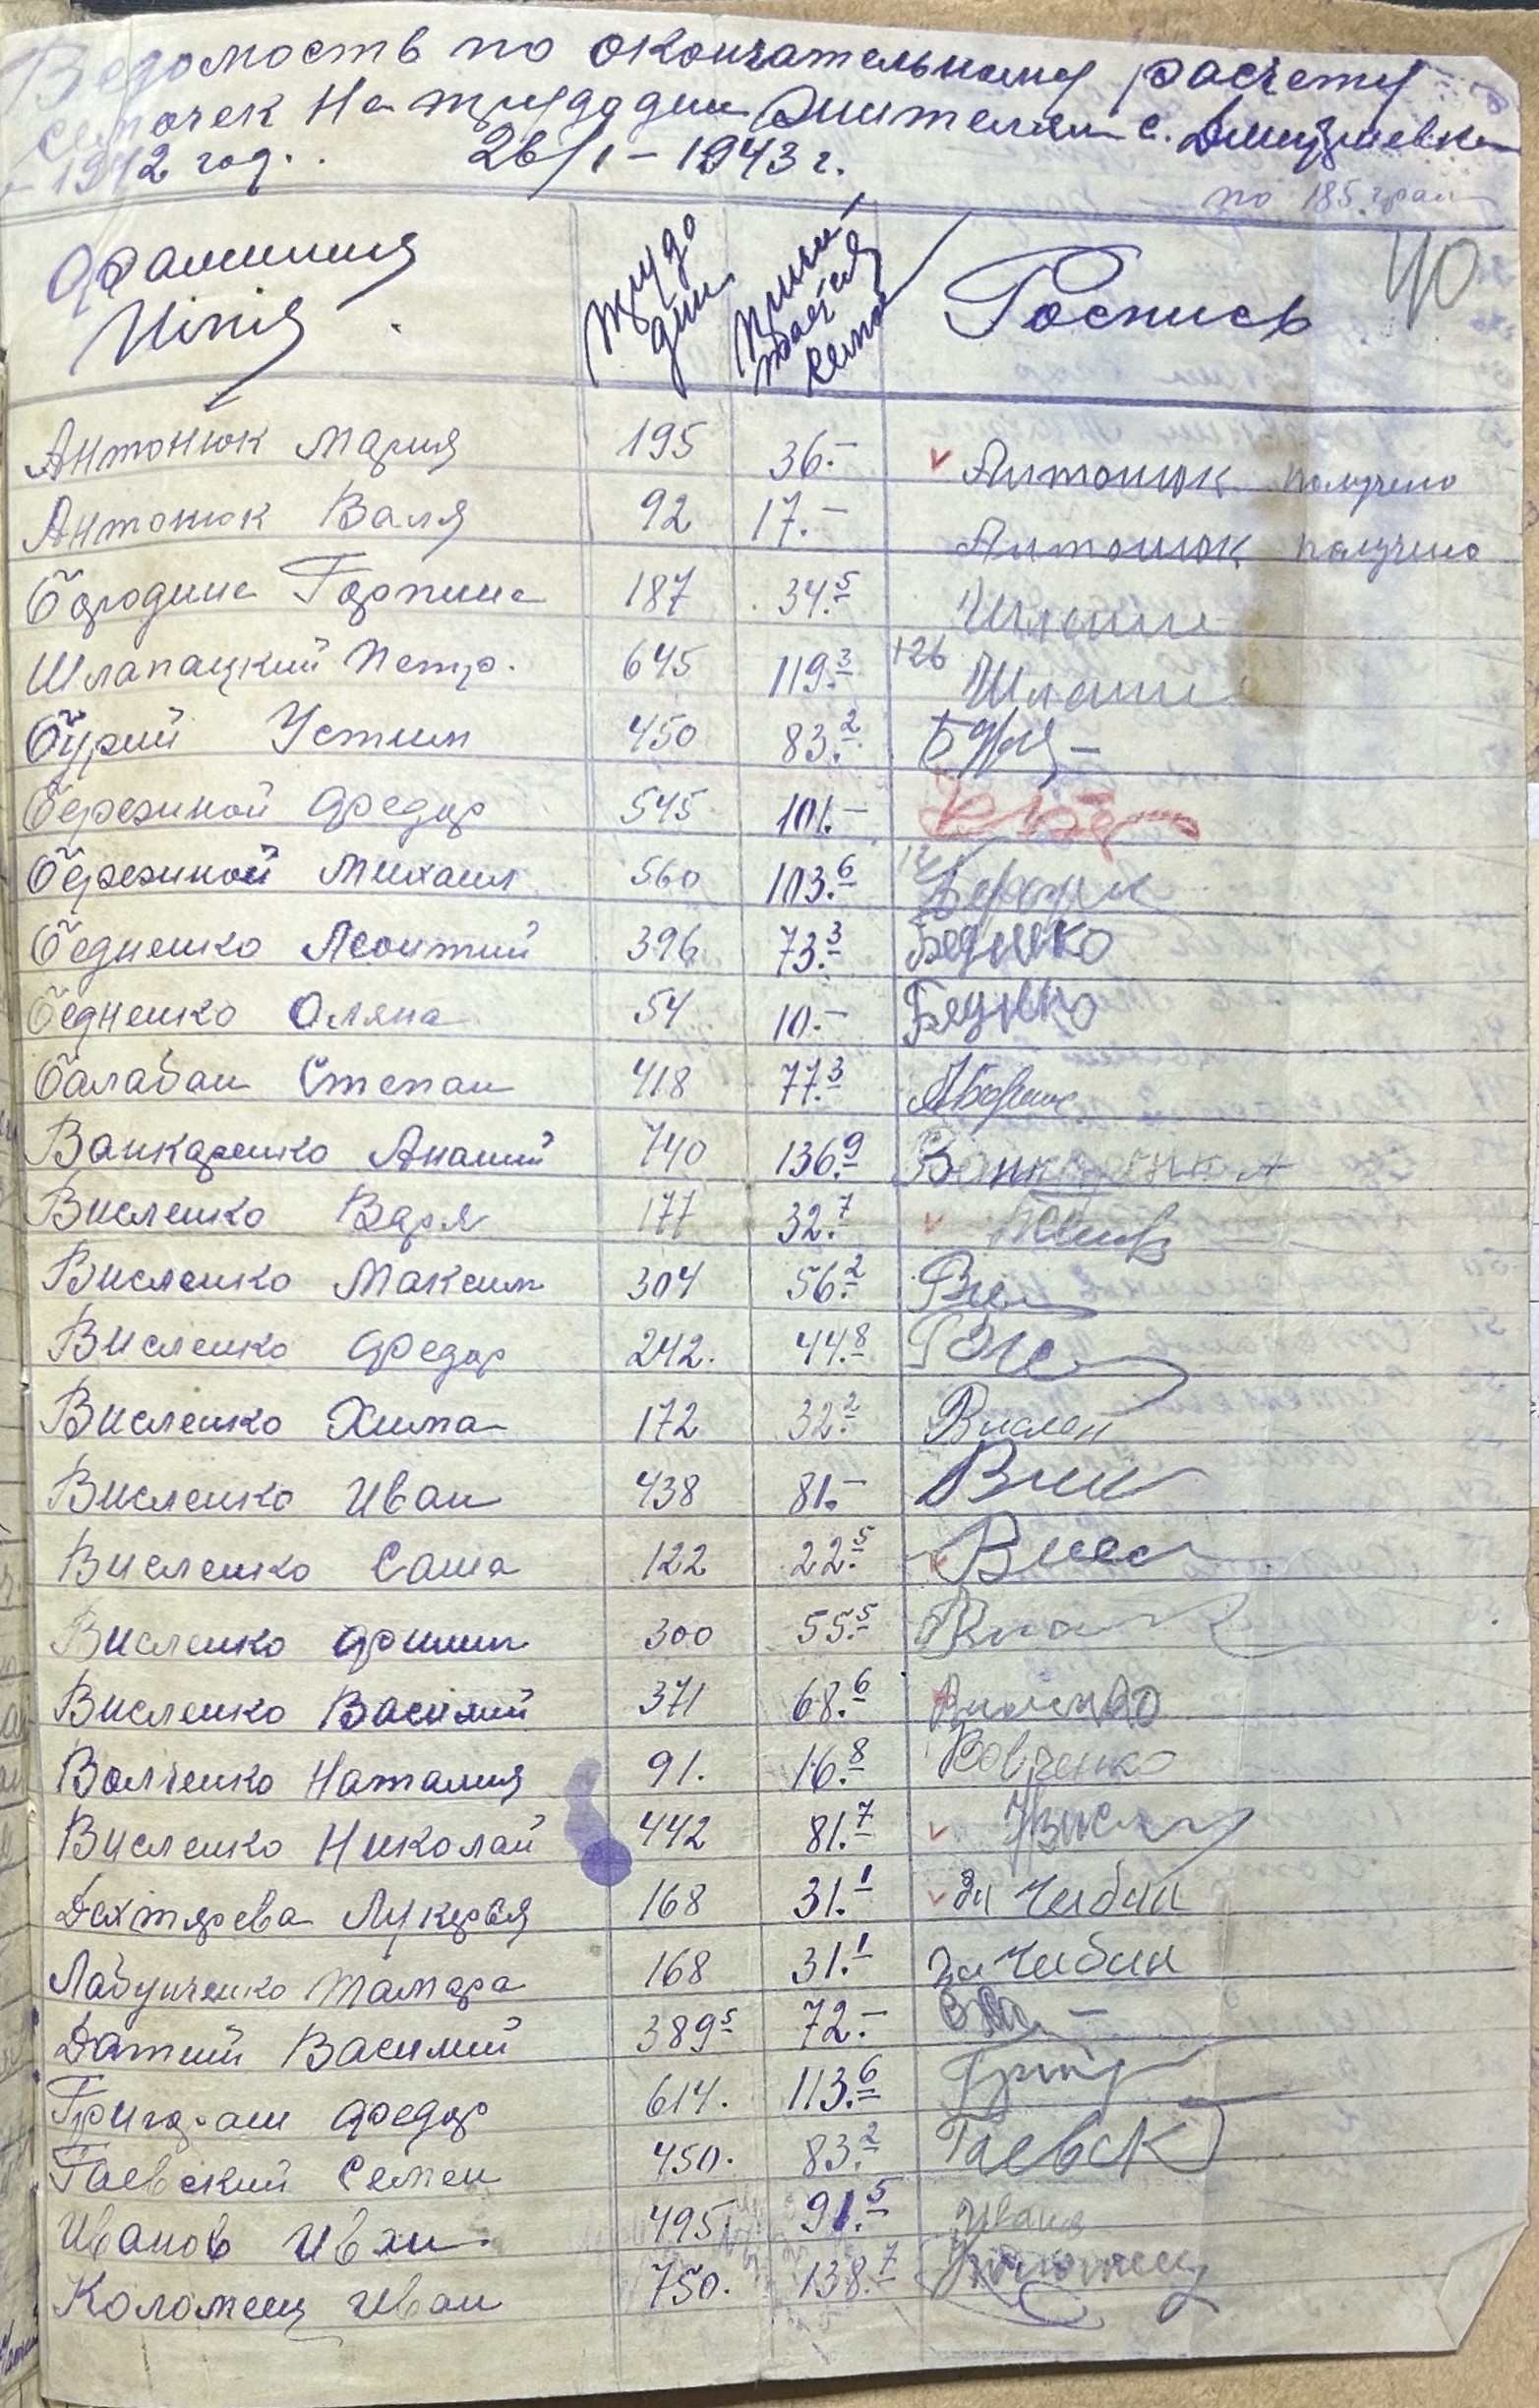 Ведомость по окончательному расчету
семечек на трудодни жителям с. Дмитриевки
1942 год. 26/I – 1943 г.
по 185 грам
Фамилия Имя
трудо дни
причи- тается кгмо
Роспись
40
Антонюк Мария 195 36.– Антонюк получено
Антонюк Валя 92 17.– Антонюк получено
Бородина Горпина 187 34.5
Шлапацкий Петр. 645 119.3 126
Бурий Устим 450 83.2
Березиной Федор 545 101.–
Березиной Михаил 560 103.6
Бедненко Леонтий 396 73.3 Беднко
Бедненко Оляна 54 10.– Беднко
Балабан Степан 418 77.3
Ванкаренко Ананий 740 136.9
Висленко Варя 177 32.7
Висленко Максим 304 56.2
Висленко Федор 242. 44.8
Висленко Хима 172 32.2 Вислен
Висленко Иван 438 81.–
Висленко Саша 122 22.5
Висленко Филип 300 55.5
Висленко Василий 371 68.6
Волченко Наталия 91. 16.8 Вовченко
Висленко Николай 442 81.7
Дехтярева Лукерья 168 31.1 За Чибан
Лабунченко Тамара 168 31.1 за Чибан
Датий Василий 389.5 72.–
Григораш Федор 614. 113.6
Гаевский Семен 450. 83.2 Гаевск
Иванов Иван. 495 91.5
Коломеец Иван 750. 138.7